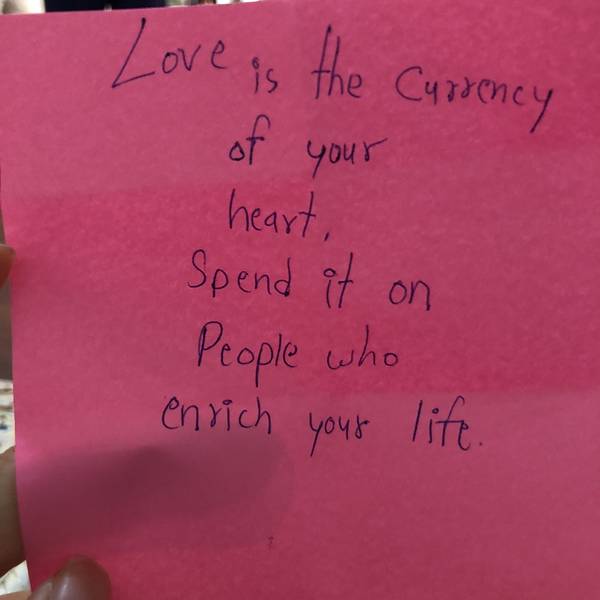 Love is the Currency
of your
heart,
Spend it on
People who
enrich your life.